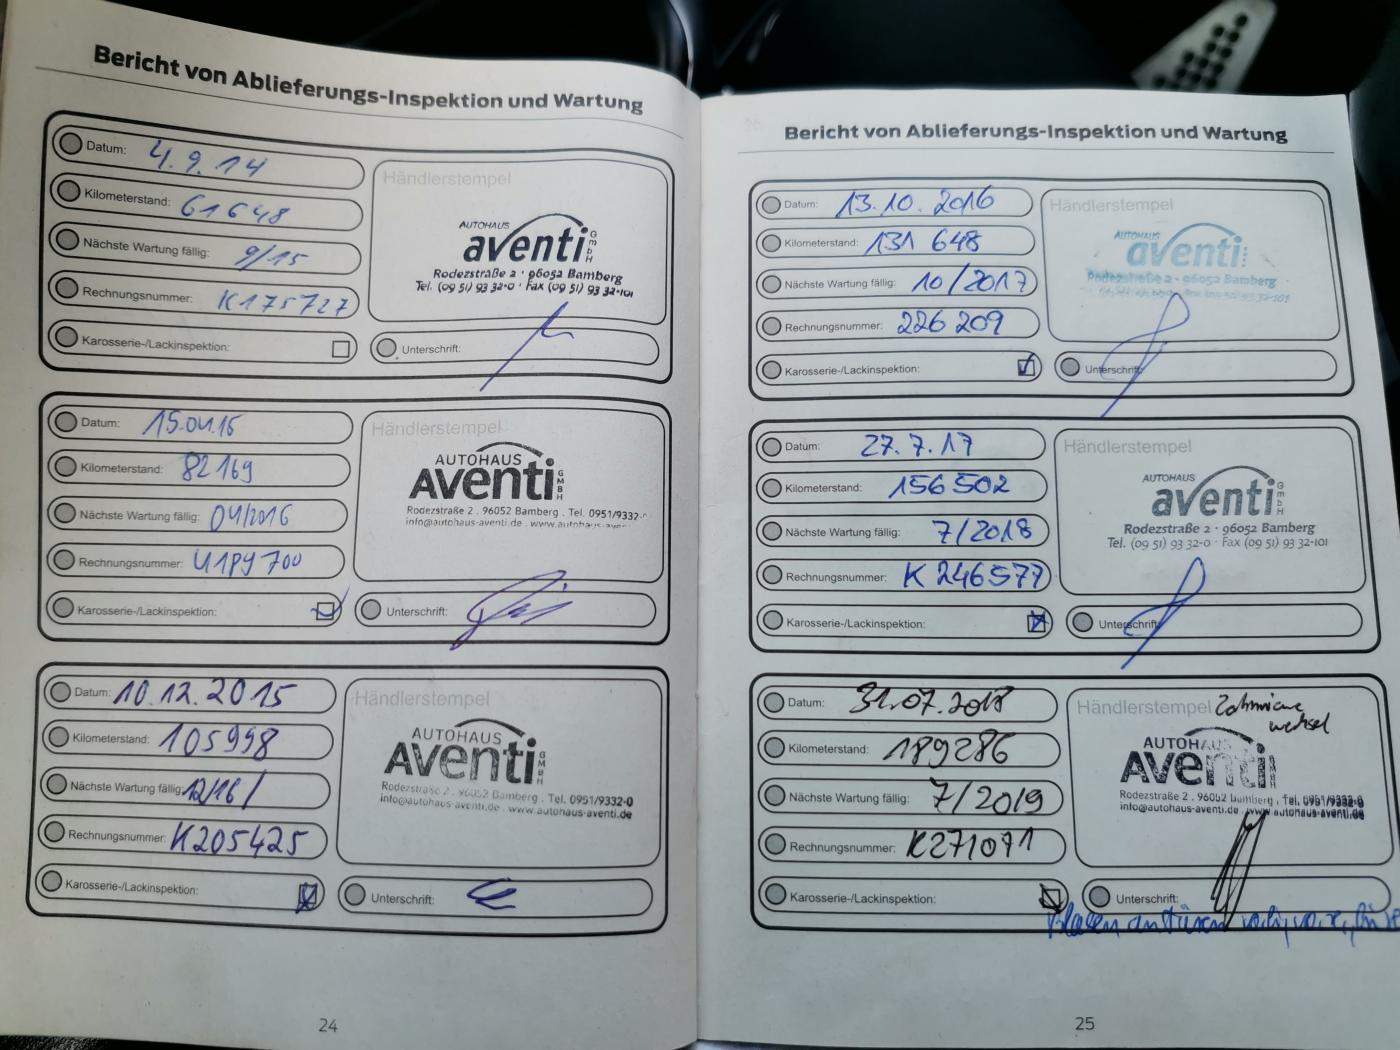 Bericht von Ablieferungs-Inspektion und Wartung
Datum: 4.9.14
Kilometerstand: 61648
Nächste Wartung fällig: 9/15
Rechnungsnummer: K175727
Karosserie-/Lackinspektion:
Händlerstempel
AUTOHAUS
aventi GmbH
Rodezstraße 2 · 96052 Bamberg
Tel. (09 51) 93 32-0 · Fax (09 51) 93 32-101
Unterschrift:
Datum: 15.04.15
Kilometerstand: 82169
Nächste Wartung fällig: 04/2016
Rechnungsnummer: U189700
Karosserie-/Lackinspektion:
Händlerstempel
AUTOHAUS
Aventi GMBH
Rodezstraße 2 . 96052 Bamberg . Tel. 0951/9332-0
info@autohaus-aventi.de . www.autohaus-aven
Unterschrift:
Datum: 10.12.2015
Kilometerstand: 105998
Nächste Wartung fällig: 12/16/
Rechnungsnummer: K205425
Karosserie-/Lackinspektion:
Händlerstempel
AUTOHAUS
Aventi GMBH
Rodezstrasse 2 . 96052 Bamberg . Tel. 0951/9332-0
info@autohaus-aventi.de . www.autohaus-aventi.de
Unterschrift:
24
Bericht von Ablieferungs-Inspektion und Wartung
Datum: 13.10.2016
Kilometerstand: 131 648
Nächste Wartung fällig: 10/2017
Rechnungsnummer: 226 209
Karosserie-/Lackinspektion:
Händlerstempel
AUTOHAUS
aventi
Rodezstraße 2 · 96052 Bamberg
Unterschrift:
Datum: 27.7.17
Kilometerstand: 156502
Nächste Wartung fällig: 7/2018
Rechnungsnummer: K 246577
Karosserie-/Lackinspektion:
Händlerstempel
AUTOHAUS
aventi GmbH
Rodezstraße 2 · 96052 Bamberg
Tel. (09 51) 93 32-0 · Fax (09 51) 93 32-101
Unterschrift:
Datum: 31.07.2018
Kilometerstand: 189286
Nächste Wartung fällig: 7/2019
Rechnungsnummer: K271071
Karosserie-/Lackinspektion:
Händlerstempel Zahnriemen
wechsel
AUTOHAUS
Aventi
Rodezstrasse 2 . 96052 Bamberg . Tel. 0951/9332-0
info@autohaus-aventi.de . www.autohaus-aventi.de
Unterschrift:
Blasen an Türen vo.li, vo.re,
25